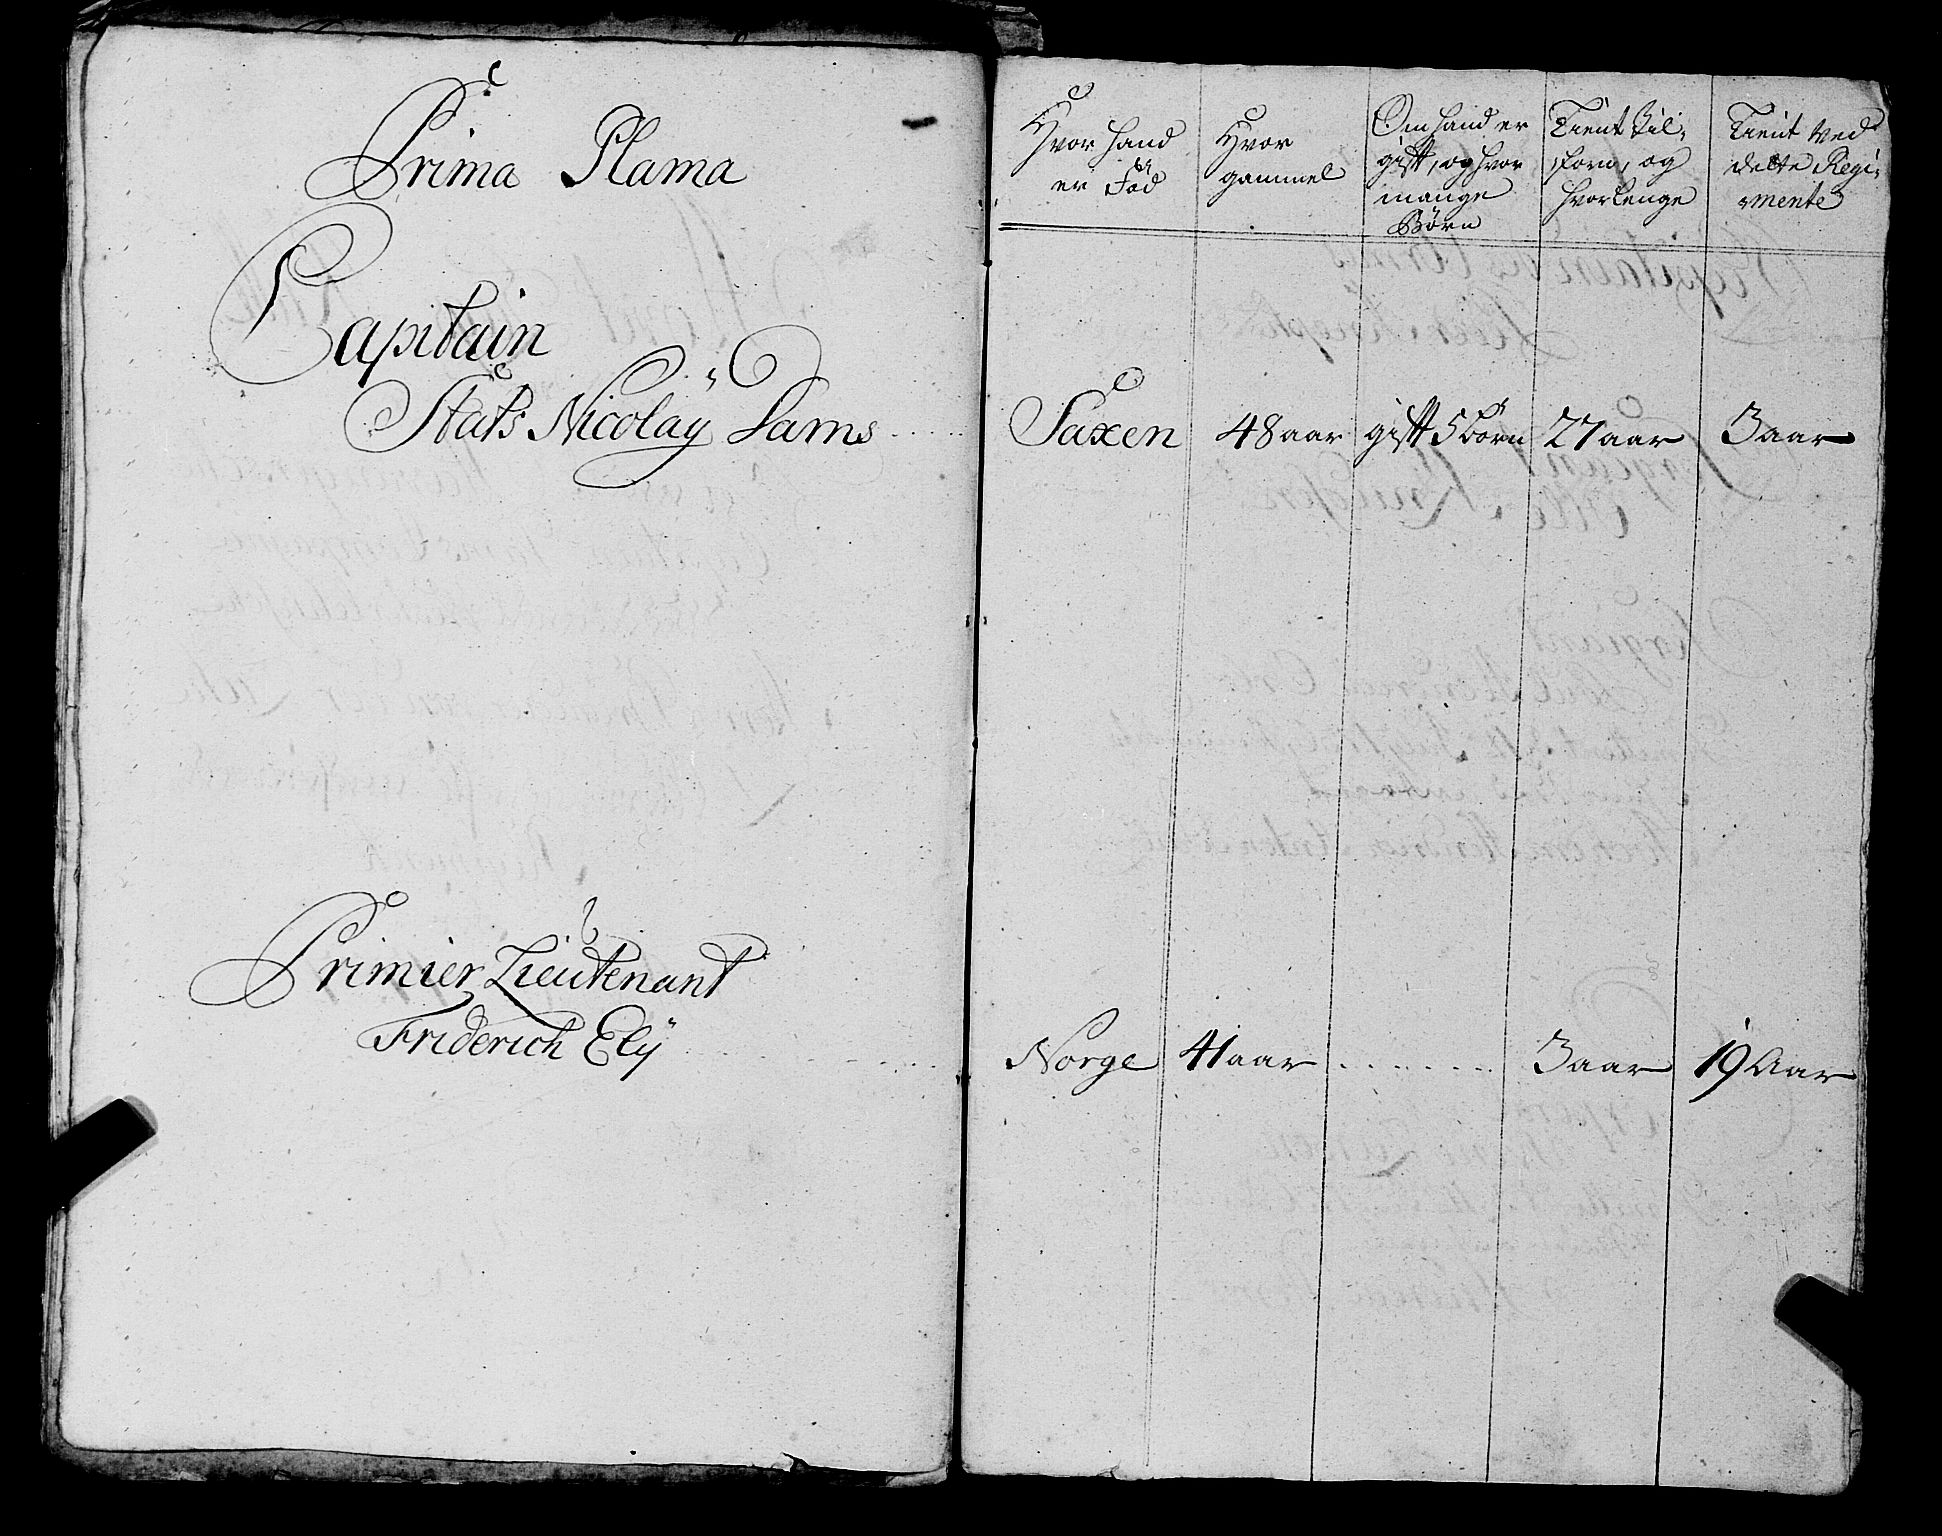 Prima Plama
Capitain
Stats Nicolaÿ Sams
Primier Lieutenant
Friderich Elÿ
Hvor hand
er Fød
Hvor
gammel
Om hand er
gift, og hvor
mange
Børn
Tient til,
forn, og
hvorlenge
Tient ved
dette Regi,
mente
Saxen 48 aar gift 5 børn 27 aar 3 aar
Norge 41 aar 3 aar 19 Aar